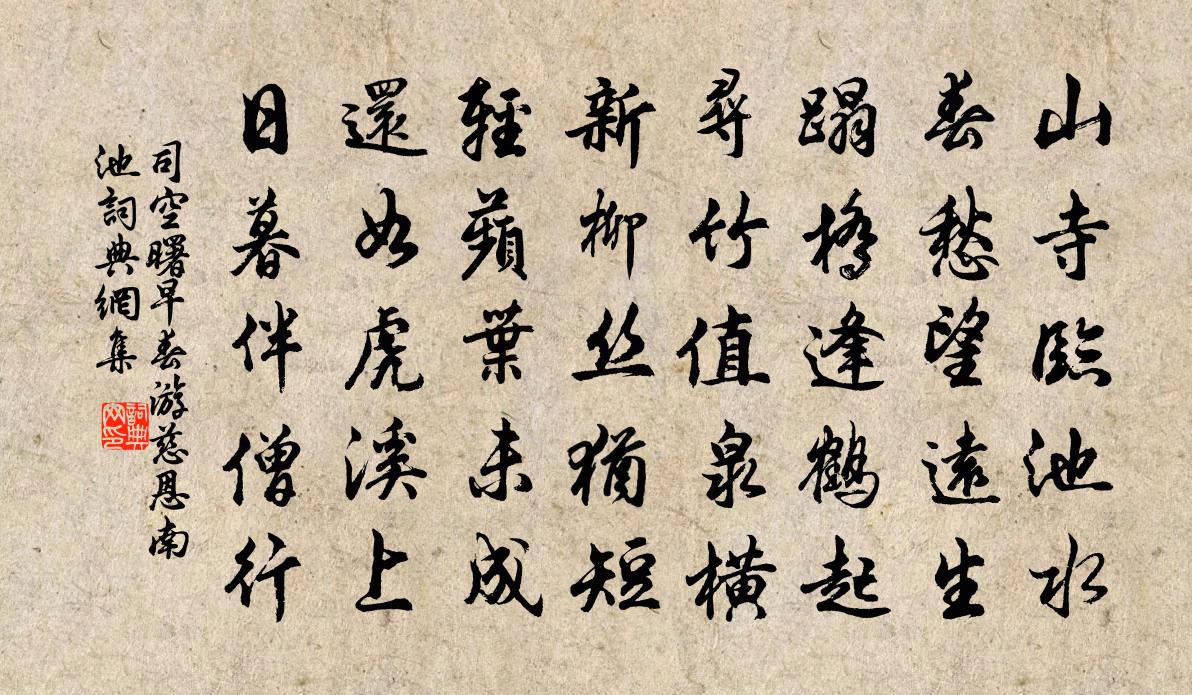 山寺臨池水
春愁望遠生
蹋橋逢鶴起
尋竹值泉橫
新柳絲猶短
輕蘋葉未成
還如虎溪上
日暮伴僧行
司空曙早春游慈恩南
池詞典網集
詞典
网印